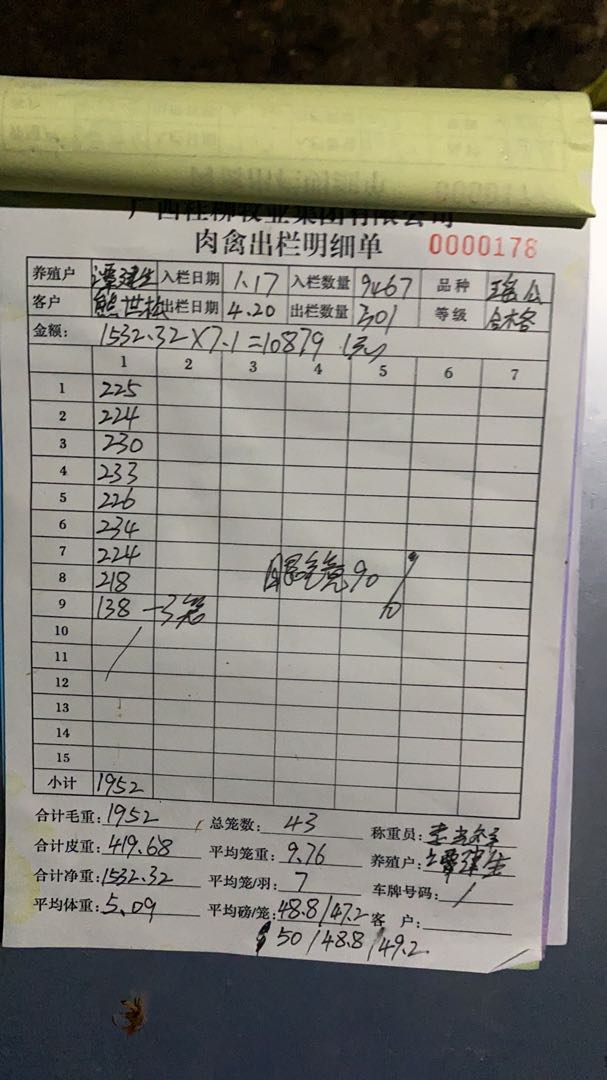 广西桂柳牧业集团有限公司
肉禽出栏明细单 0000178
养殖户 潭建生 入栏日期 1.17 入栏数量 9467 品种 瑶公
客户 熊世栋 出栏日期 4.20 出栏数量 301 等级 合格
金额: 1532.32×7.1=10879
1 2 3 4 5 6 7
1 225
2 224
3 230
4 233
5 226
6 234
7 224
8 218 90
9 138 3笼
10
11
12
13
14
15
小计 1952
合计毛重: 1952 总笼数: 43 称重员:
合计皮重: 419.68 平均笼重: 9.76 养殖户: 潭建生
合计净重: 1532.32 平均笼/羽: 7 车牌号码: /
平均体重: 5.09 平均磅/笼: 48.8/47.2 客 户:
50/48.8/49.2